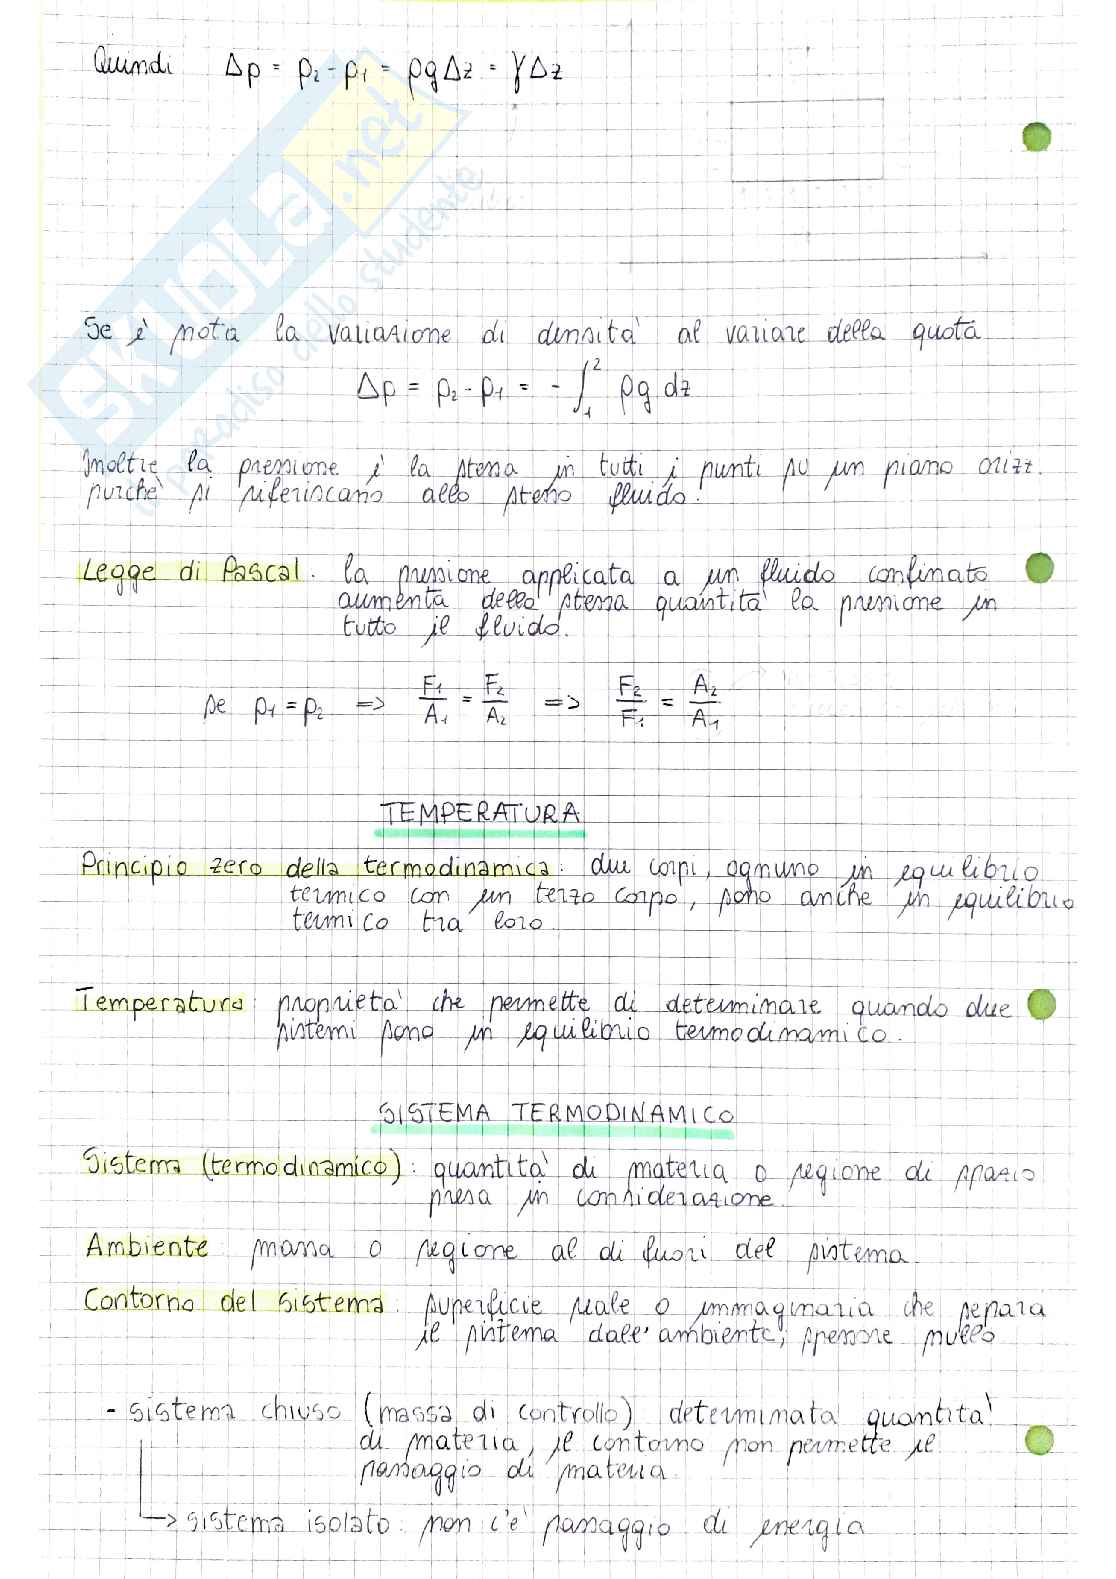 Quindi Δp = p₂ - p₁ = ρgΔz = γΔz
Se è nota la variazione di densità al variare della quota
Δp = p₂ - p₁ = - ∫₁² ρg dz
Inoltre la pressione è la stessa in tutti i punti su un piano orizz.
purché si riferiscano allo stesso fluido.
Legge di Pascal. la pressione applicata a un fluido confinato
aumenta della stessa quantità la pressione in
tutto il fluido.
se p₁ = p₂ => F₁/A₁ = F₂/A₂ => F₂/F₁ = A₂/A₁
TEMPERATURA
Principio zero della termodinamica: due corpi, ognuno in equilibrio
termico con un terzo corpo, sono anche in equilibrio
termico tra loro
Temperatura: proprietà che permette di determinare quando due
sistemi sono in equilibrio termodinamico.
SISTEMA TERMODINAMICO
Sistema (termodinamico): quantità di materia o regione di spazio
presa in considerazione
Ambiente massa o regione al di fuori del sistema
Contorno del sistema: superficie reale o immaginaria che separa
il sistema dall'ambiente, spessore nullo
- sistema chiuso (massa di controllo) determinata quantità
di materia, il contorno non permette il
passaggio di materia
-> sistema isolato: non c'è passaggio di energia
SKUOLA.net
il paradiso dello studente